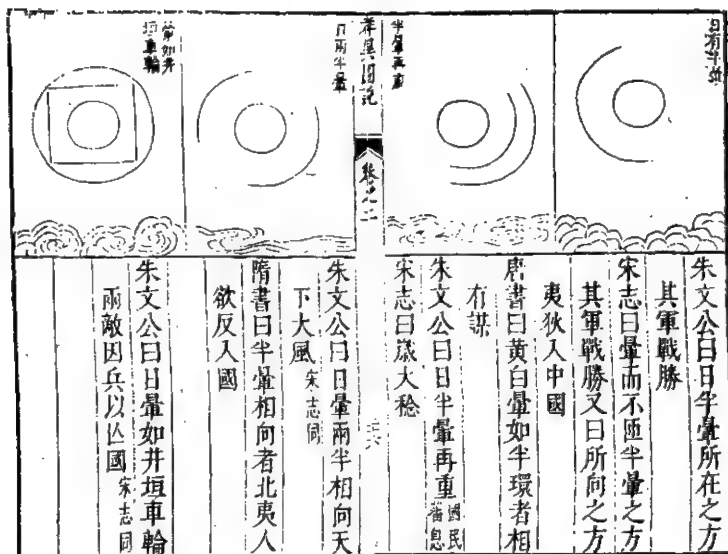 日有半暈
朱文公曰日半暈所在之方
其軍戰勝
宋志曰暈而不匝半暈之方
其軍戰勝又曰所向之方
夷狄入中國
半暈再重
唐書曰黃白暈如半環者相
有謀
朱文公曰日半暈再重國民
蕃息
宋志曰歲大稔
祥異圖說
卷之二
日兩半暈
朱文公曰日暈兩半相向天
下大風宋志同
隋書曰半暈相向者北夷人
欲反入國
暈如井
垣車輪
朱文公曰日暈如井垣車輪
兩敵因兵以亾國宋志同